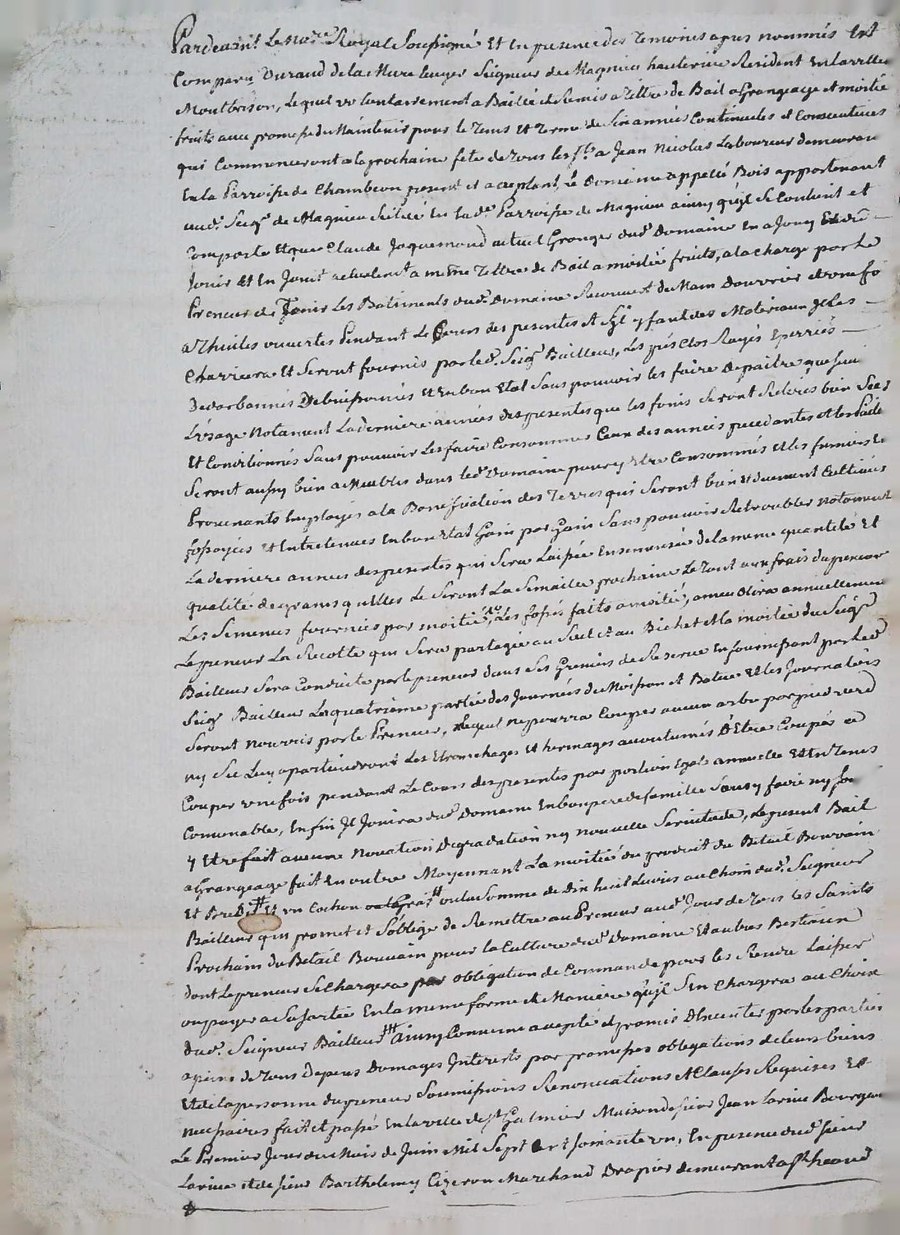 Pardevant Le no.re Royal Soussigné Et En presence des temoins apres nommés Est
Comparu Durand de la Mure Ecuyer Seigneur de Magnieu hauterive Resident En la ville
Montbrison, Lequel volontairement a Baillé et Remis a tiltre de Bail a Grangeage et moitié
fruits avec promesse de Maintenir pour le tems Et terme de Six années Continuelles et Consecutives
qui Commenceront a la prochaine fete de tous les Sts a Jean Nicolas Laboureur demeurant
En la Parroisse de Chambeon present et acceptant, le Domaine appellé Bois appartenant
aud. Seigr de Magnieu Scitué En lad. Parroisse de Magnieu ainsy qu'il Se Contient et
Comporte Et que Claude Jaquemond actuel Granger dud. Domaine En a Jouy Et dû
Jouir Et En Jouit actuellement a même tiltre de Bail a moitié fruits, a la charge par le
Preneur de tenir Les Batiments dud. Domaine Recouvert de Main d'ouvrier
a thuiles ouvertes Pendant Le Cours des presentes Et S'il y faut des Materiaux Il Les
Charriera Et Seront fournis par led. Seigr Bailleur, Les prés Clos Rayés Eperriés
Et En bon Etat Sans pouvoir les faire depaitre que suivant
L'usage Notament La derniere année des presentes que les foins Seront Retirés bien Secs
Et Conditionnés Sans pouvoir Les faire Consommer Ceux des années precedantes et les Paille
Seront aussy bien dans led. Domaine pour y Etre Consommés et les fumiers En
Provenants Employés a la Bonification des Terres qui Seront bien et duement Cultivées
fossoyées Et Entretenues En bon Etat Gain par Gain Sans pouvoir Retroubler Notament
La derniere année des presentes qui Sera Laissée Ensemencée de la meme quantité Et
qualité de grains qu'elles Le Seront La Semaille prochaine Le tout aux frais du preneur
Les Semences fournies par moitié, Les fossés faits a moitié,
Le preneur La Recolte qui Sera partagée au Seul Et au Bichet Et la moitié du Seigr
Bailleur Sera Conduite par le preneur dans Ses Greniers de Reserve En fournissant par led.
Seigr Bailleur La quatrieme partie des Journées de Moisson Et Batue Et Les Journaliers
Seront nourris par le Preneur, Lequel ne pourra Couper aucun arbre par pied verd
ny Sec Luy apartiendront Les Etronchages Et hermages accoutumés D'Etre Coupés a
Couper une fois pendant Le Cours des presentes par portion Egale annuelle Et En tems
Convenable, En fin Il Jouira dud. Domaine En bon pere de famille Sans y faire ny
y Etre fait aucune Novation Degradation ny nouvelle Servitude, Le present Bail
a Grangeage fait En outre Moyennant La moitié du produit du Betail Bouvain
Et un Cochon ou la Somme de Dix huit Livres au Choix dud. Seigneur
Bailleur qui promet et S'oblige de Remettre au Preneur aud. Jour de tous les Saints
Prochain du Betail Bouvain pour la Culture dud. Domaine Et autres Bestiaux
dont Le preneur Se Chargera par obligation de Commande pour les Rendre Laisser
ou payer a Sa Sortie En la meme forme et Maniere qu'il S'En Chargera au Choix
dud. Seigneur Bailleur ainsy Convenu accepté et promis Observer par les parties
a peine de tous depens Domages Interets par promesses obligations de leurs biens
Et de la personne du preneur Soumissions Renonciations Et Clauses Requises Et
necessaires fait et passé En la ville de St Galmier Maison de Sieur Jean Larive Bourgeois
Le Premier Jour du Mois de Juin Mil Sept Cent Soixante un, En presence dud. Sieur
Larive Et de Sieur Barthelemy Cizeron Marchand Drapier demeurant a St heand